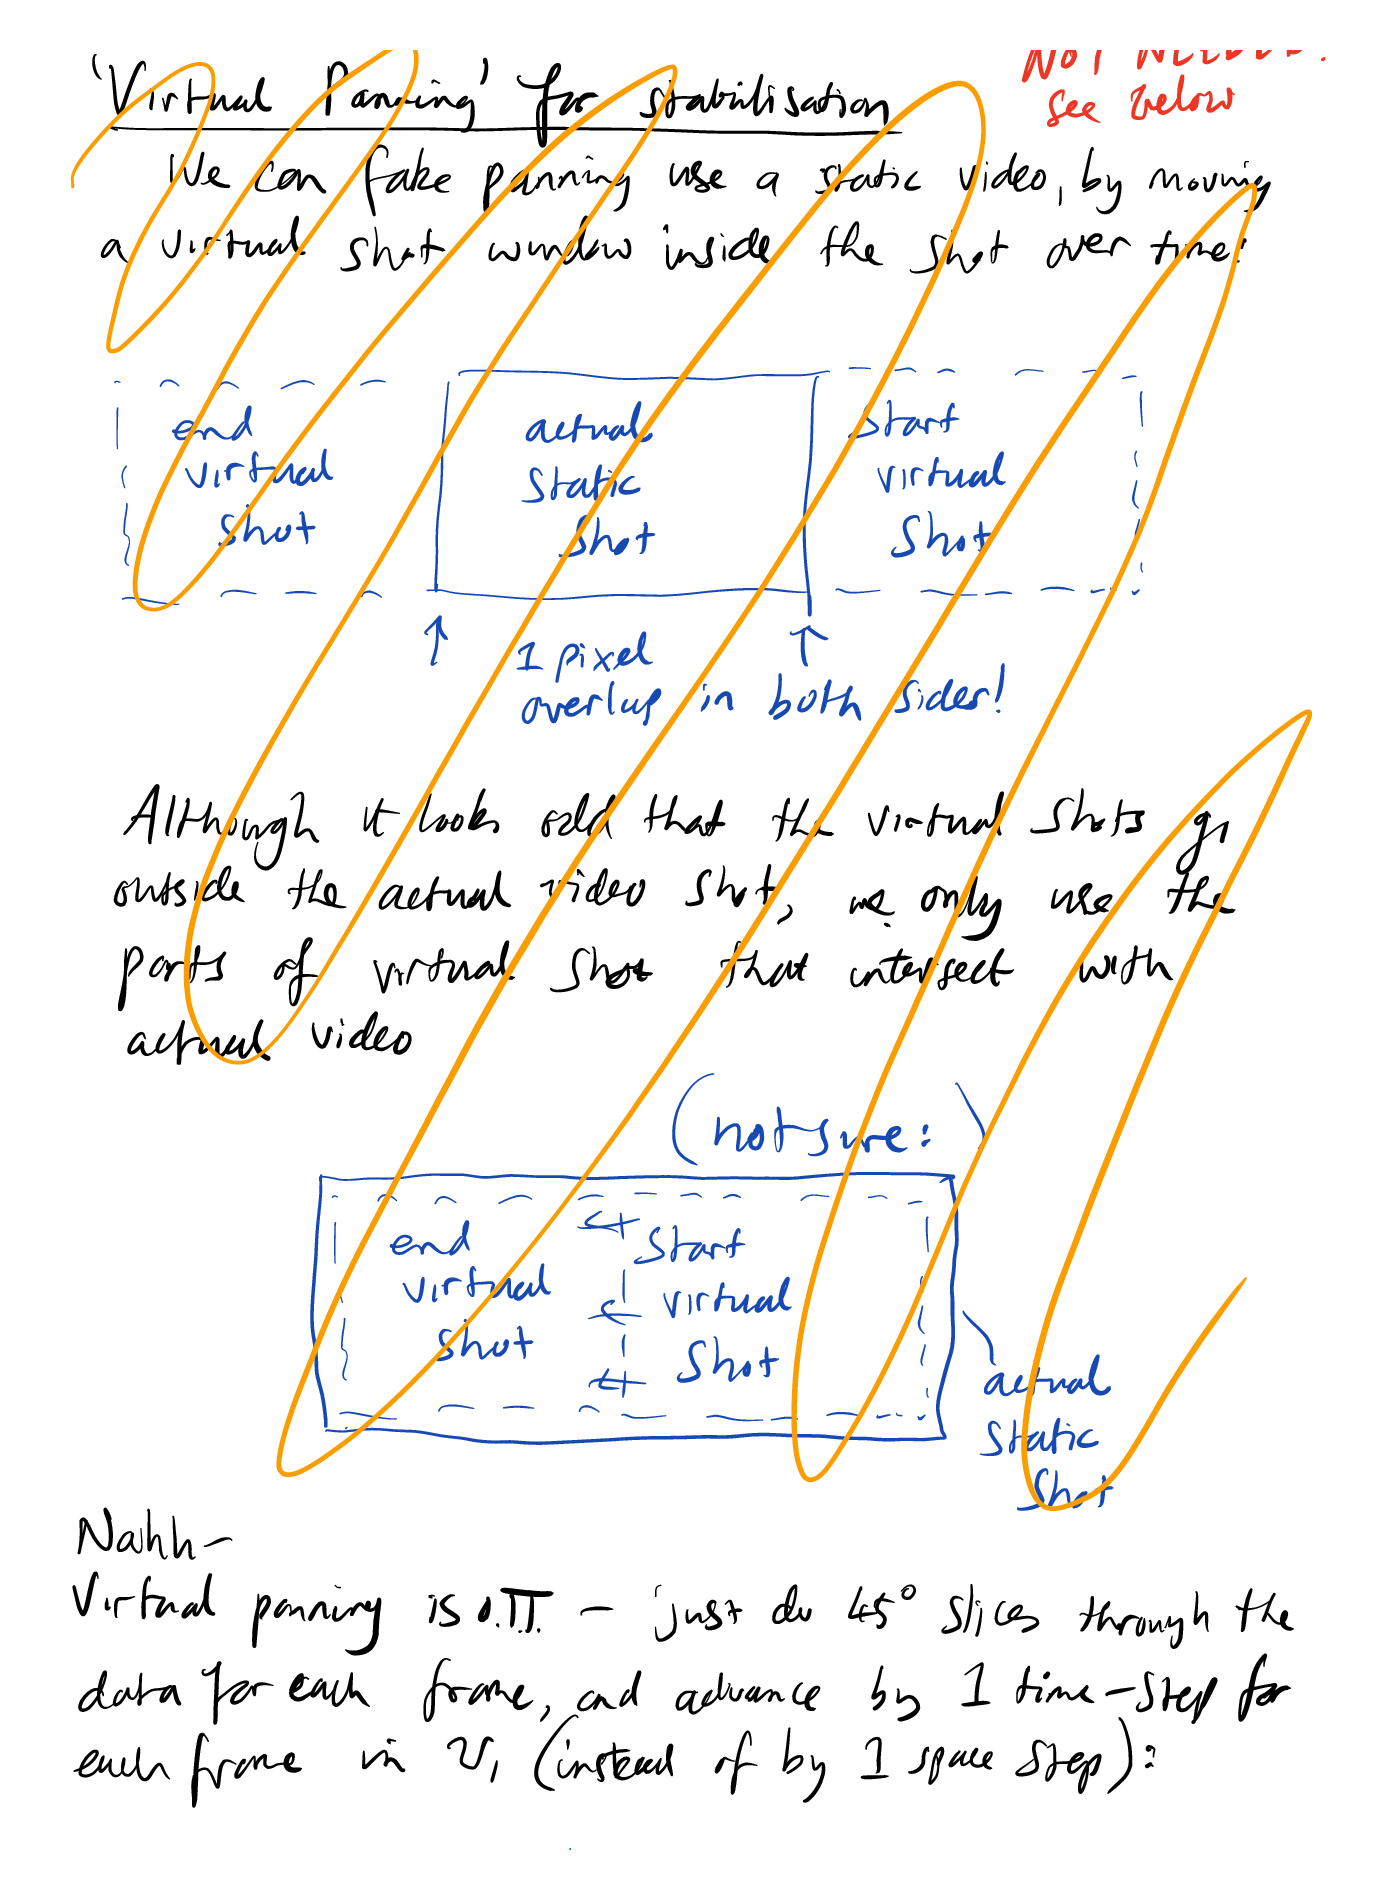 'Virtual Panning' for stabilisation
NOT NEEDED.
see below
We can fake panning use a static video, by moving
a virtual shot window inside the shot over time:
end
virtual
shot
actual
static
shot
start
virtual
shot
1 pixel
overlap in both sides!
Although it looks odd that the virtual shots go
outside the actual video shot, we only use the
parts of virtual shot that intersect with
actual video
(not sure: )
end
virtual
shot
start
virtual
shot
actual
static
shot
Nahh-
Virtual panning is O.T.T. - just do 45° slices through the
data for each frame, and advance by 1 time-step for
each frame in V₁ (instead of by 1 space step):